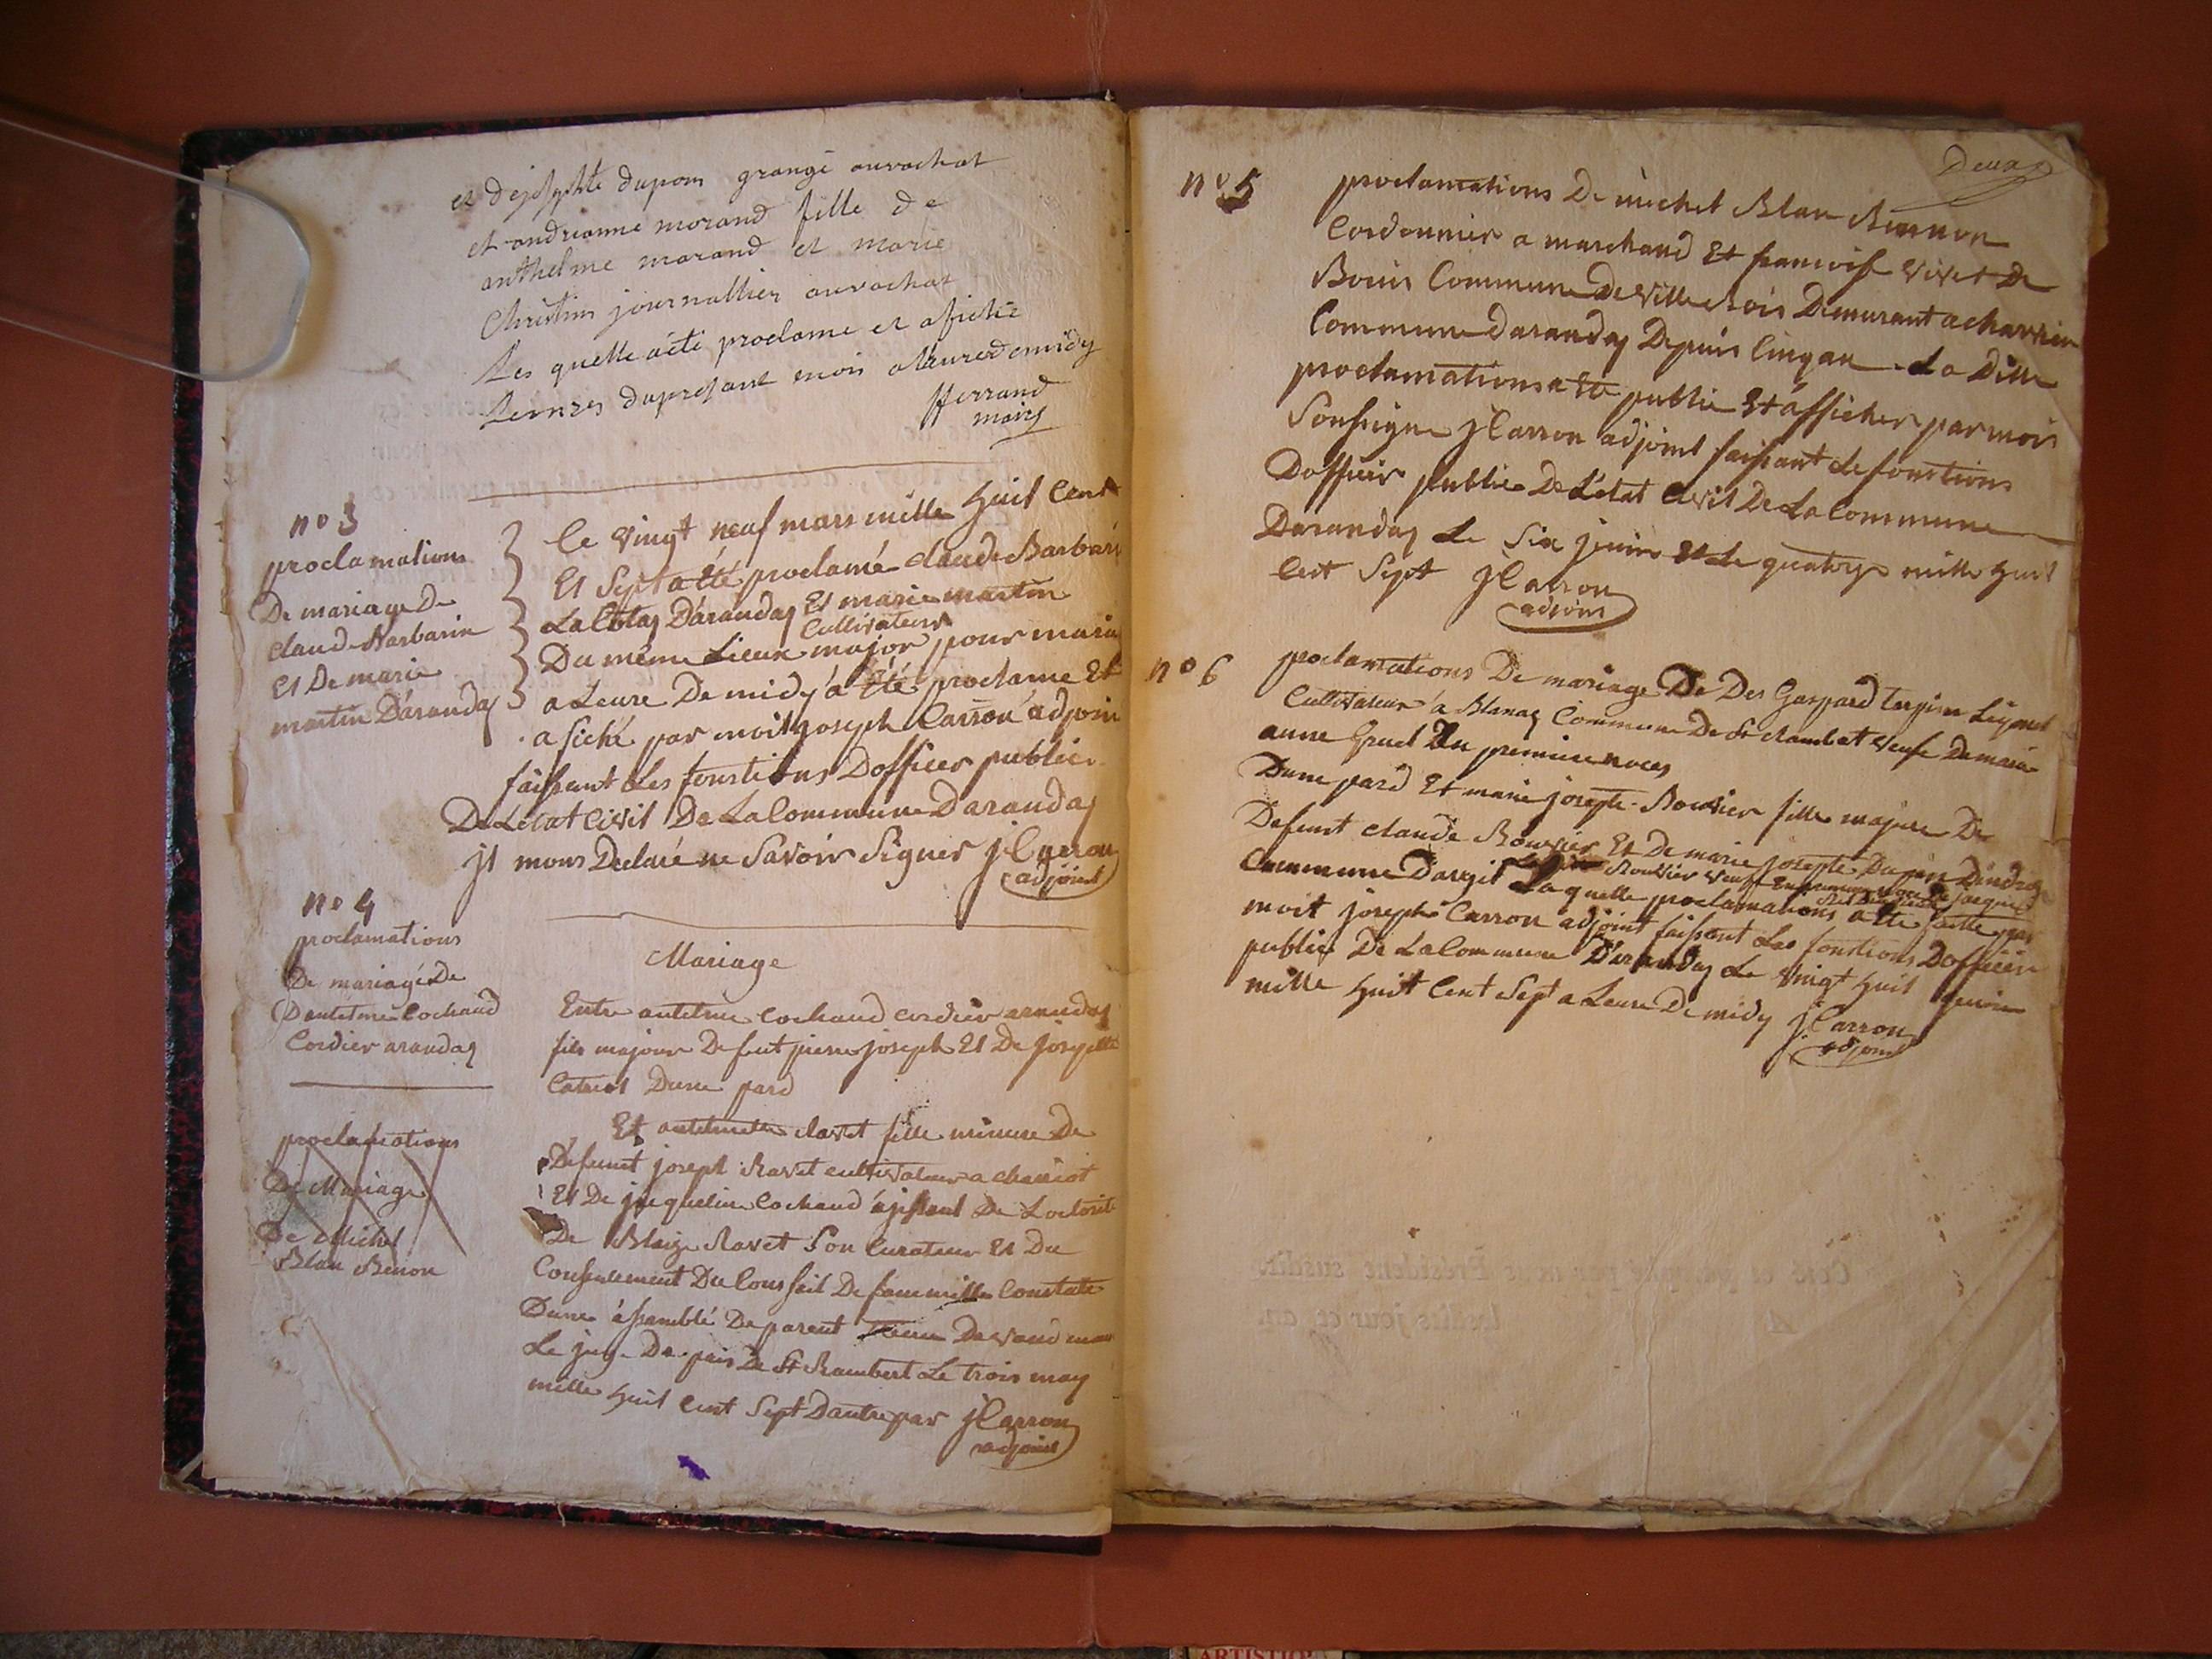 et de josephte dupom grangé au rochat
et andrianne morand fille de
anthelme morand et marie
Christin journallier au rochat
Les quelle a été proclamé et afiché
Le onzes du presant mois a leure de midy
fferrand
maire
no 3
proclamations
De mariage De
claude Barbarin
Et De marie
martin D'aranday
Ce vingt neuf mars mille huit Cent
Et Sept a été proclamé claude Barbari
La Cotay D'aranday Et marie martin
Cultivateur
Du même Lieux major pour maria
a Leure De midy a été proclame Et
a fiché par moit joseph Carron adjoin
faissant Les fonstions Dofficer public
De Létat Civil De La Commune Daranday
jl mons Declaré ne Savoir Signer j Carron
adjoint
no 4
proclamations
De mariage De
Dantelme Cochaud
Cordier aranday
Mariage
Entre antelme Cochaud cordier aranday
fils majour Defeut pierre joseph Et De josephte
Catriot Dune pard
Et antelmette Ravet fille mineure De
Defeunt joseph Ravet cultivateur a
Et De jacqueline Cochaud ajissant De Lotorité
De Blaize Ravet Son Curateur Et Du
Consentement Du Conseil De fammille Constate
Dune assamblé De parent Devand
Le juge De pais De St Rambert Le trois may
mille huit Cent Sept Dautre par j Carron
adjoint
proclamations
De Mariage
De Michel
Blan Benon
Deux
no 5
proclamations De michel Blan Bennon
Cordonnier a marchand Et francoise vivet De
Bouis Commune De Ville Bois Demurant a charvieu
Commune daranday Depuis Cinq an La Ditte
proclamations a Ete publie Et afficher par mois
Soussigne j Carron adjoint faissant Le fonstions
Dofficier public De Létat Civil De La Commune
Daranday Le Six juin Et Le quatorze mille huit
Cent Sept j Carron
adjoint
no 6
proclamations De mariage De Des Gaspard
Cultivateur a Blanaz Commune De St Rambert veufe De marie
anne Gruel En premiere noces
Dune pard Et marie josepte Bouvier fille majeure De
Defeunt claude Bouvier Et De marie josepte
Commune Dargit Laquelle proclamations a Ete faitte par
Bouvier veuve En premiere noce De jacques
moit joseph Carron adjoint faissant Les fonstions Dofficier
public De La Commune Daranday Le vingt huit juin
mille huit Cent Sept a Leure De midy j Carron
adjoint
ARTISTIQ